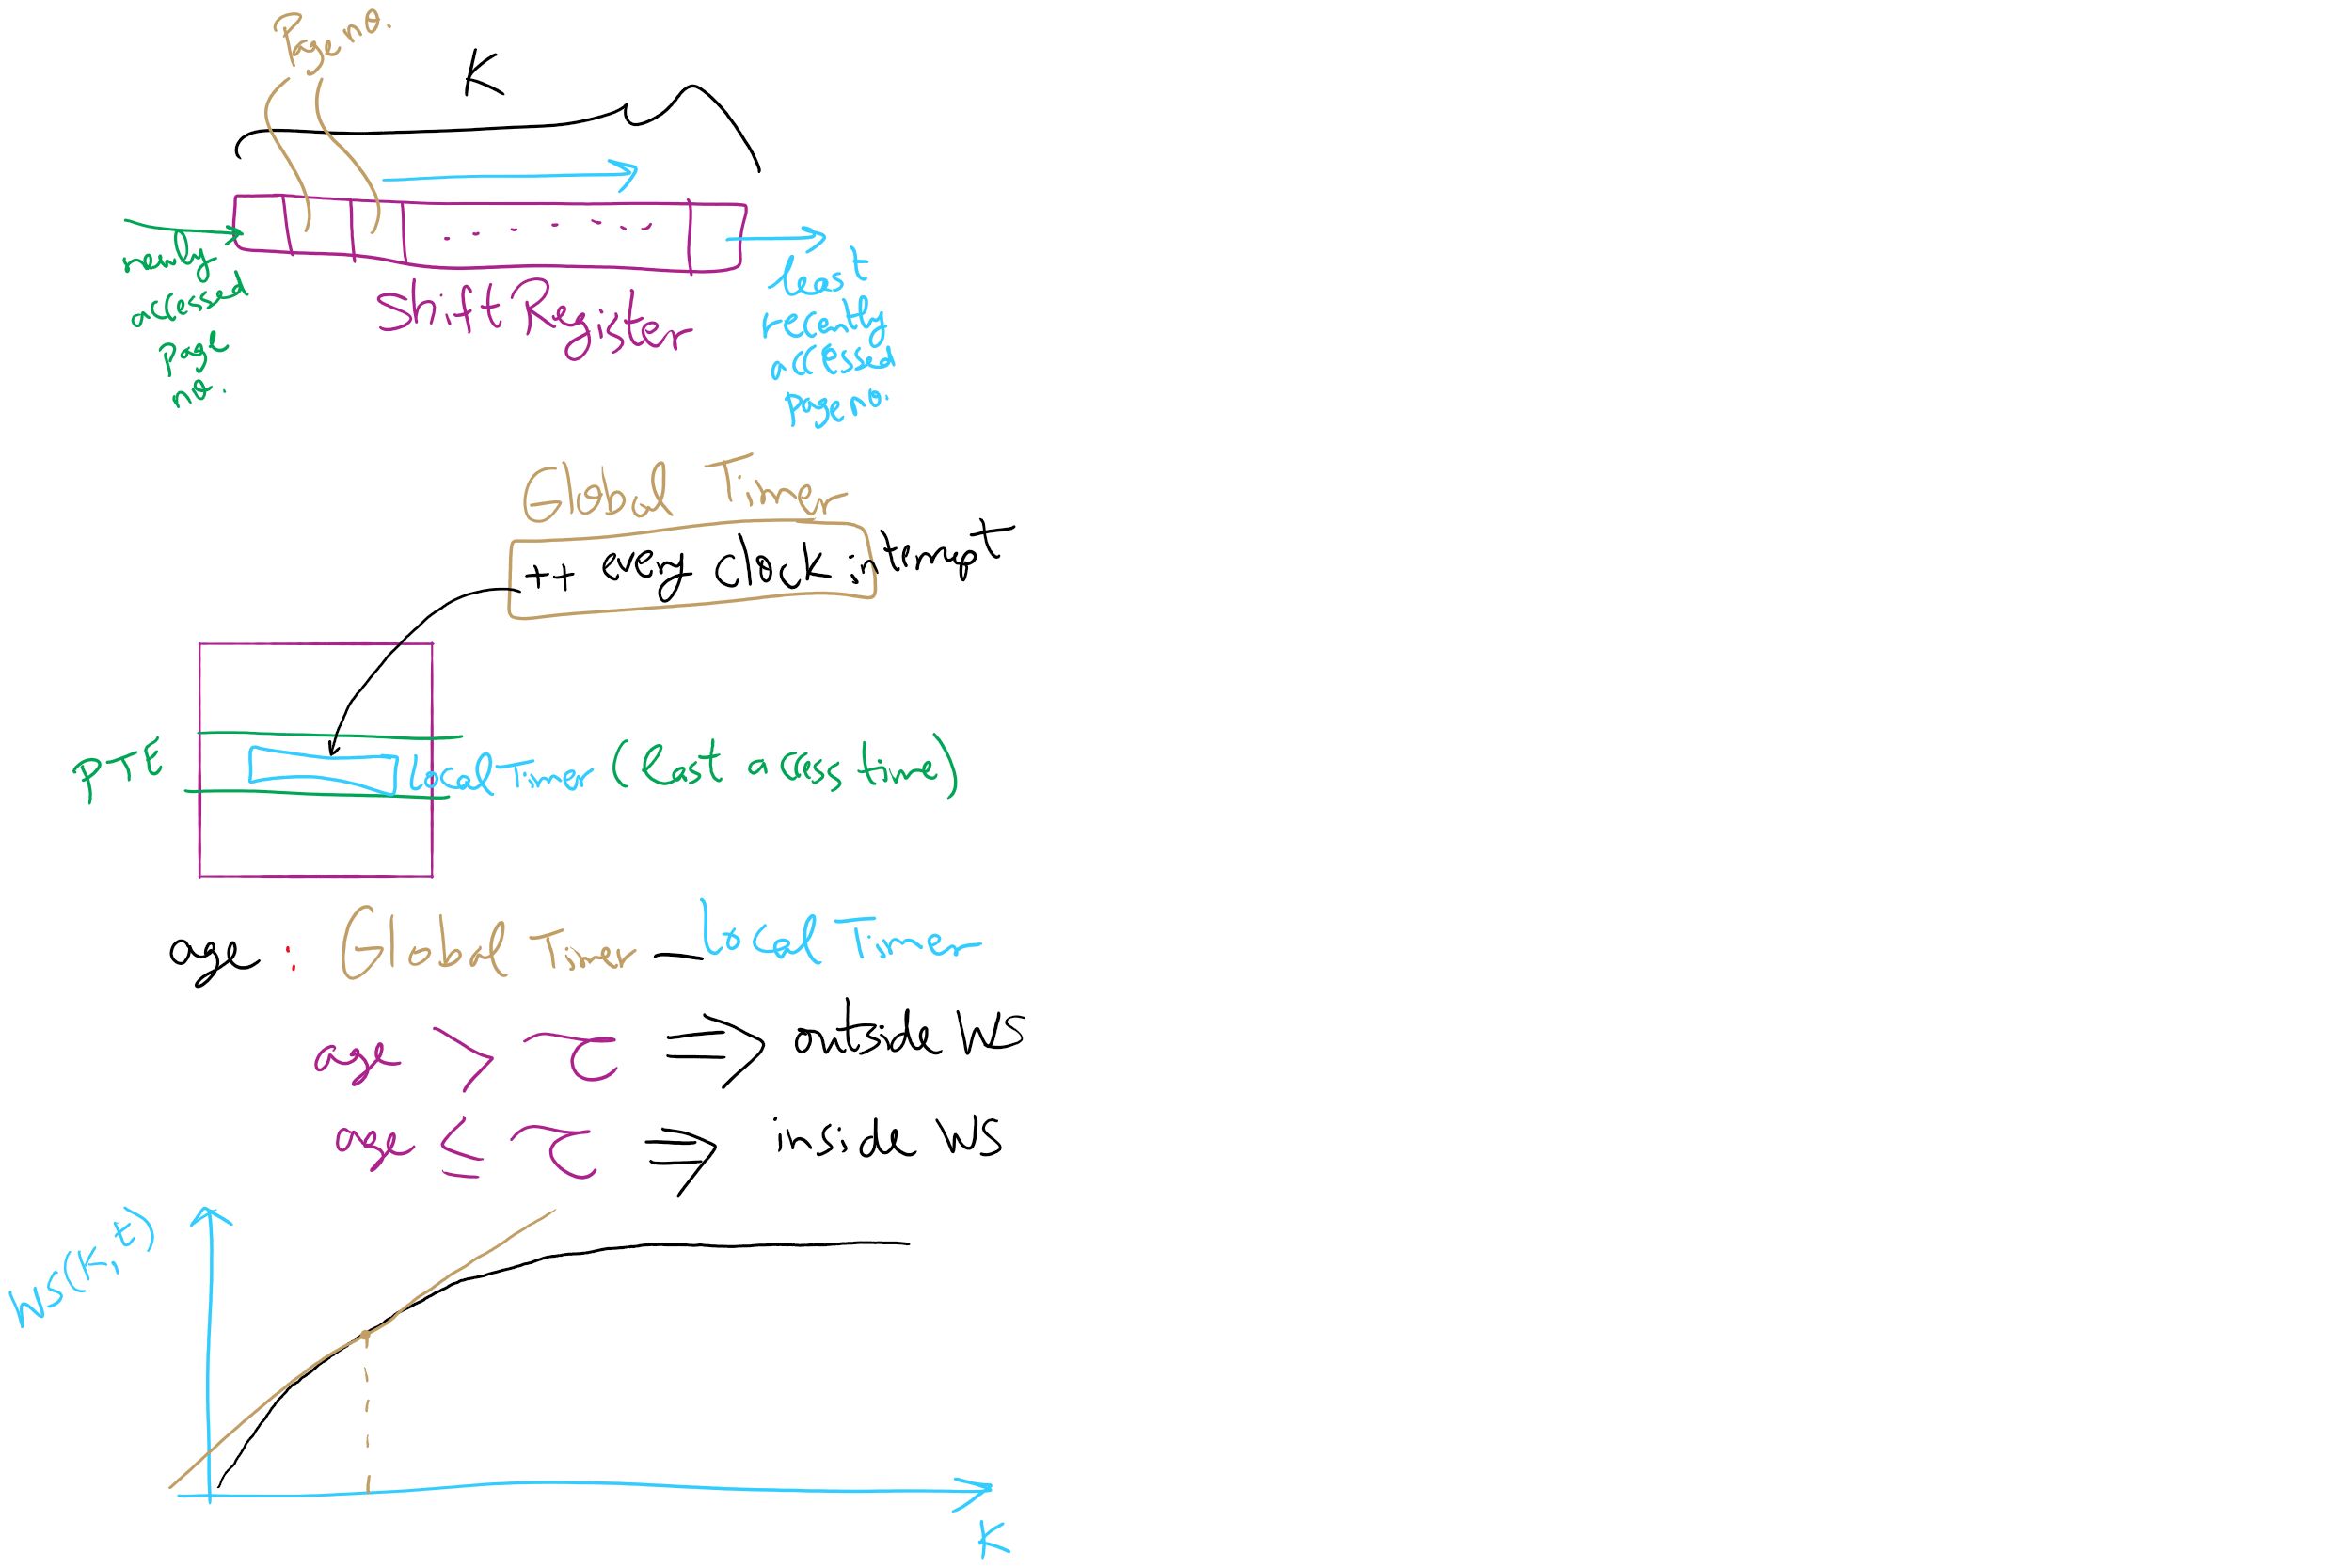 Page no.
K
newly
accessed
page
no.
Shift Register
least
recently
accessed
page no.
Global Timer
++ every clock interrupt
PTE
Local Timer (last access time)
age : Global Timer — Local Timer
age > τ ⇒ outside WS
age ≤ τ ⇒ inside WS
WS(K,t)
K